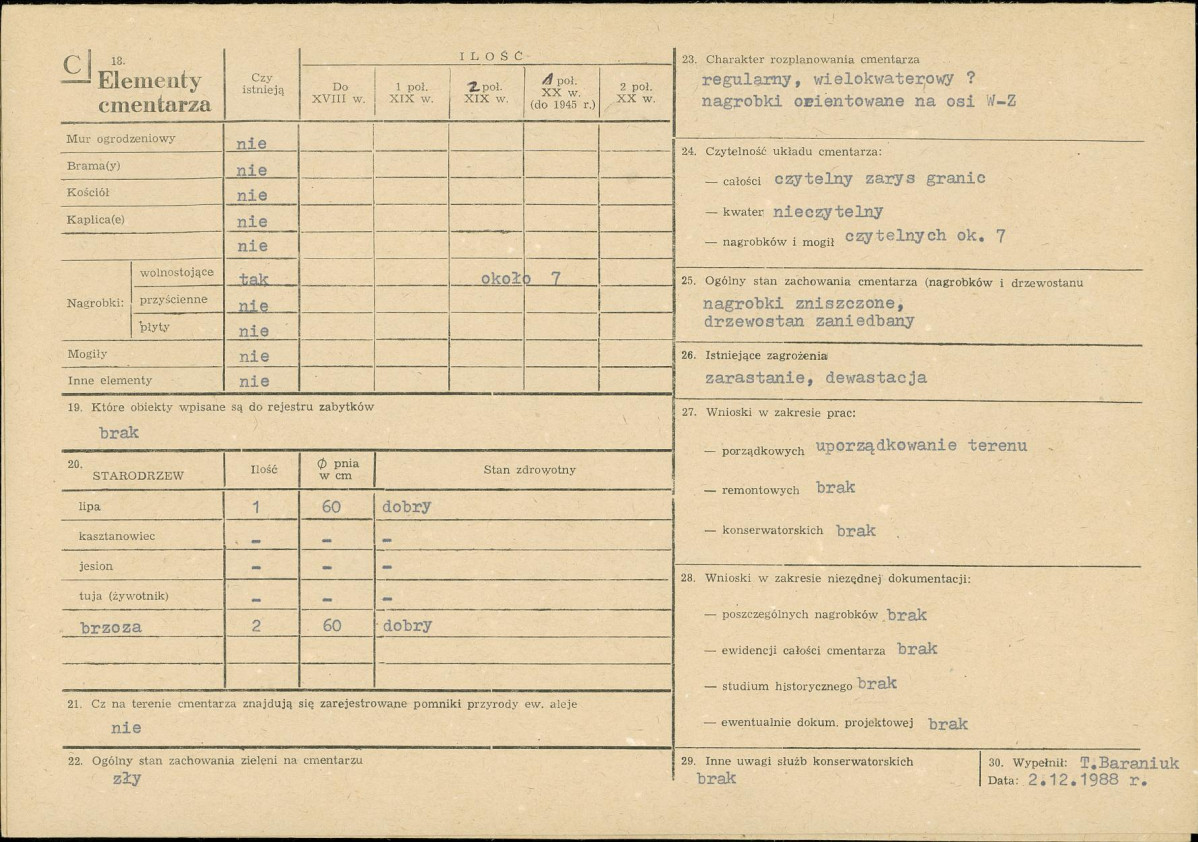 C
18.
Elementy
cmentarza
Czy
istnieją
ILOŚĆ
Do
XVIII w.
1 poł.
XIX w.
2 poł.
XIX w.
1 poł.
XX w.
(do 1945 r.)
2 poł.
XX w.
Mur ogrodzeniowy nie
Brama(y) nie
Kościół nie
Kaplica(e) nie
nie
Nagrobki:
wolnostojące tak około 7
przyścienne nie
płyty nie
Mogiły nie
Inne elementy nie
19. Które obiekty wpisane są do rejestru zabytków
brak
20.
STARODRZEW
Ilość
Ø pnia
w cm
Stan zdrowotny
lipa 1 60 dobry
kasztanowiec – – –
jesion – – –
tuja (żywotnik) – – –
brzoza 2 60 dobry
21. Cz na terenie cmentarza znajdują się zarejestrowane pomniki przyrody ew. aleje
nie
22. Ogólny stan zachowania zieleni na cmentarzu
zły
23. Charakter rozplanowania cmentarza
regularny, wielokwaterowy ?
nagrobki orientowane na osi W-Z
24. Czytelność układu cmentarza:
— całości czytelny zarys granic
— kwater nieczytelny
— nagrobków i mogił czytelnych ok. 7
25. Ogólny stan zachowania cmentarza (nagrobków i drzewostanu
nagrobki zniszczone,
drzewostan zaniedbany
26. Istniejące zagrożenia
zarastanie, dewastacja
27. Wnioski w zakresie prac:
— porządkowych uporządkowanie terenu
— remontowych brak
— konserwatorskich brak
28. Wnioski w zakresie niezędnej dokumentacji:
— poszczególnych nagrobków brak
— ewidencji całości cmentarza brak
— studium historycznego brak
— ewentualnie dokum. projektowej brak
29. Inne uwagi służb konserwatorskich
brak
30. Wypełnił: T.Baraniuk
Data: 2.12.1988 r.